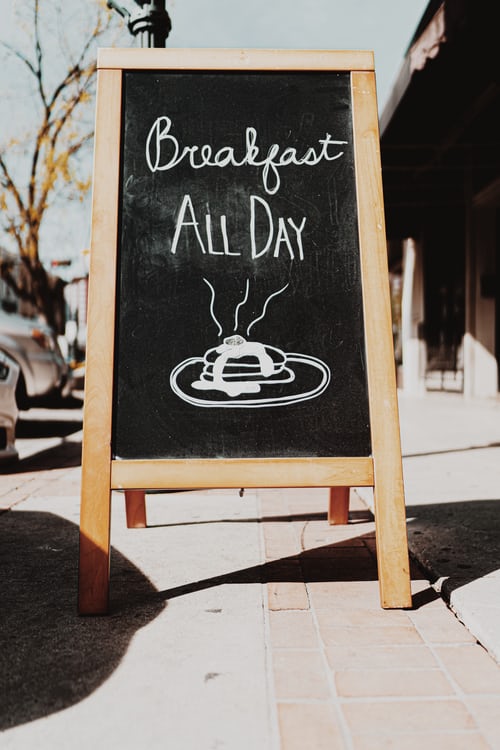 Breakfast
ALL DAY